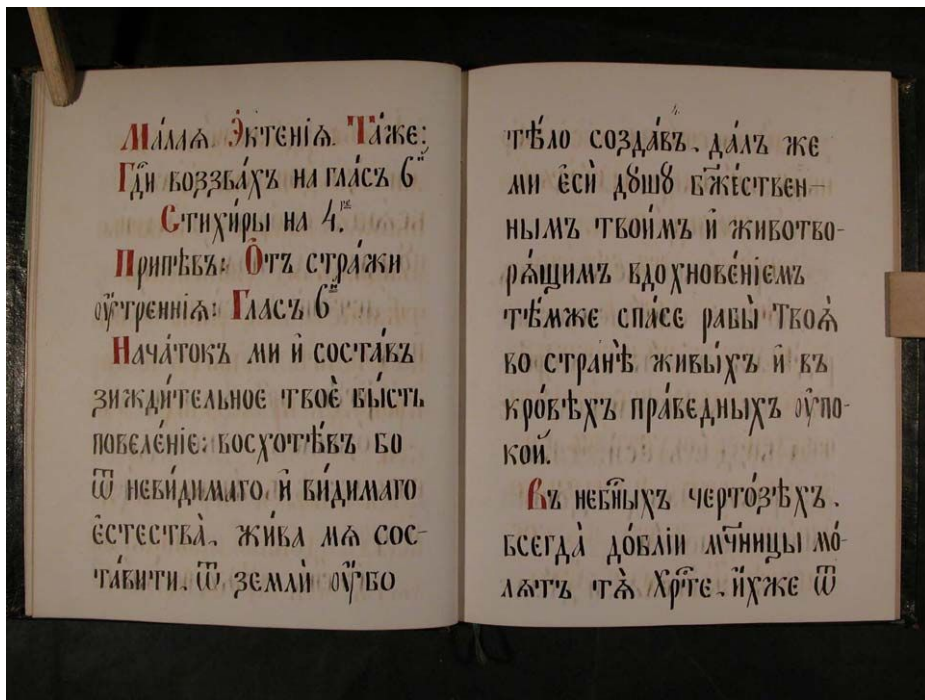 Ма́лаѧ Э́ктенїѧ. Та́же:
Гдⷭ҇и воззва́хъ на гла́съ 6й
Стихи́ры на 4.
Припѣ́въ: Ѿтъ стра́жи
ᲂу҆́тренїѧ: Гла́съ 6й
Нача́токъ ми и҆ соста́въ
зижди́тельное твоѐ бы́сть
повеле́нїе: восхотѣ́въ бо
ѿ неви́димаго, и҆ ви́димаго
є҆стества̀, жи́ва мѧ сос-
та́вити, ѿ землѝ ᲂу҆́бо
тѣ́ло созда́въ, да́лъ же
ми є҆сѝ дꙋ́шꙋ бж҃е́ствен-
нымъ твои́мъ и҆ животво-
рѧ́щимъ вдохнове́нїемъ
тѣ́мже спа́се рабы̀ Твоѧ̀
во стра́нѣ живы́хъ и҆ въ
кро́вѣхъ пра́ведныхъ ᲂу҆по-
ко́й.
Въ нбⷭ҇ныхъ черто́зѣхъ,
всегда̀ до́блїи мч҃ницы мо́-
лѧтъ тѧ̀ Хрⷭ҇те, и҆́хже ѿ